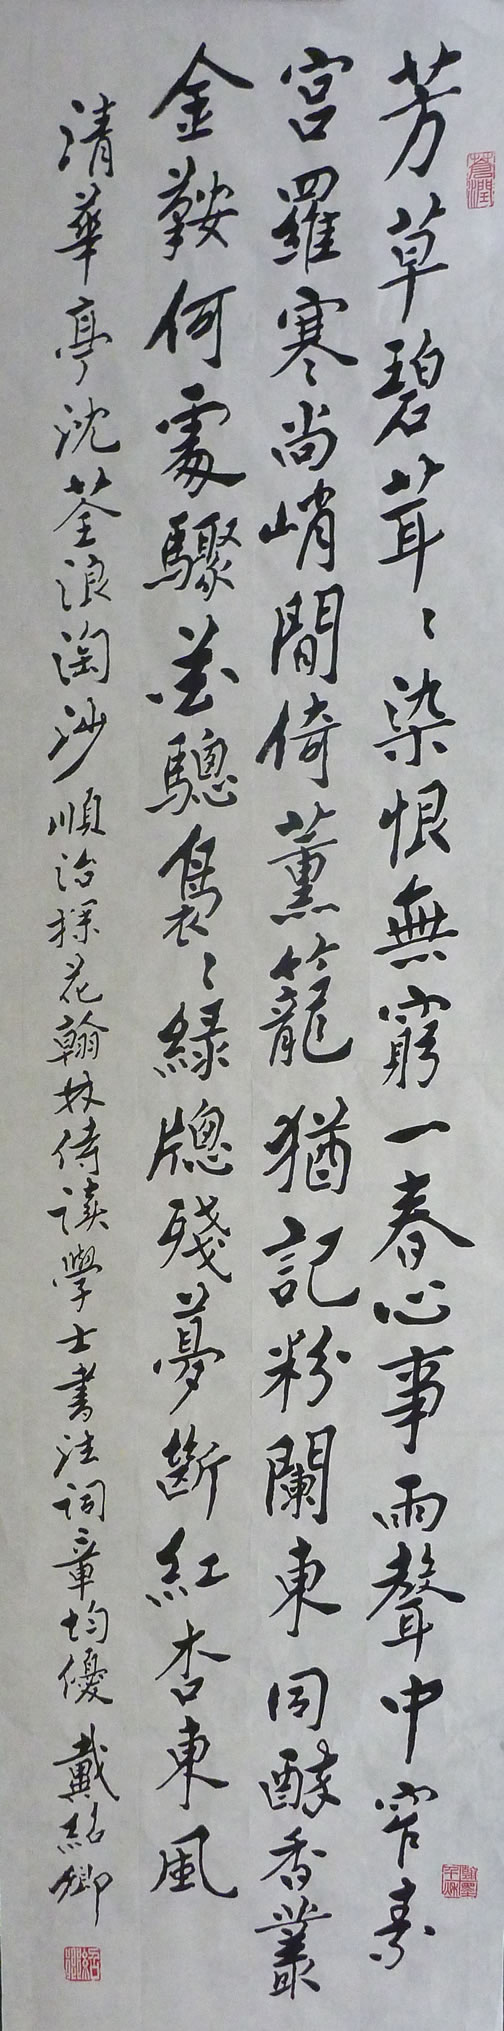 芳草碧茸〻染恨無窮一春心事雨聲中窄素
宮羅寒尚峭間倚薰籠猶記粉闌東同醉香叢
金鞍何處驟花驄裊〻綠牕殘夢斷紅杏東風
清華亭沈荃浪淘沙順治探花翰林侍讀學士書法詞章均優 戴紹卿
蒼潤